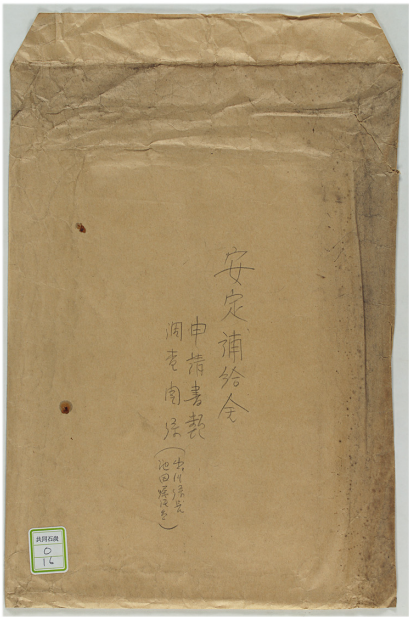 安定補給金
申請書類
調査関係
池田
共同石炭
0
16